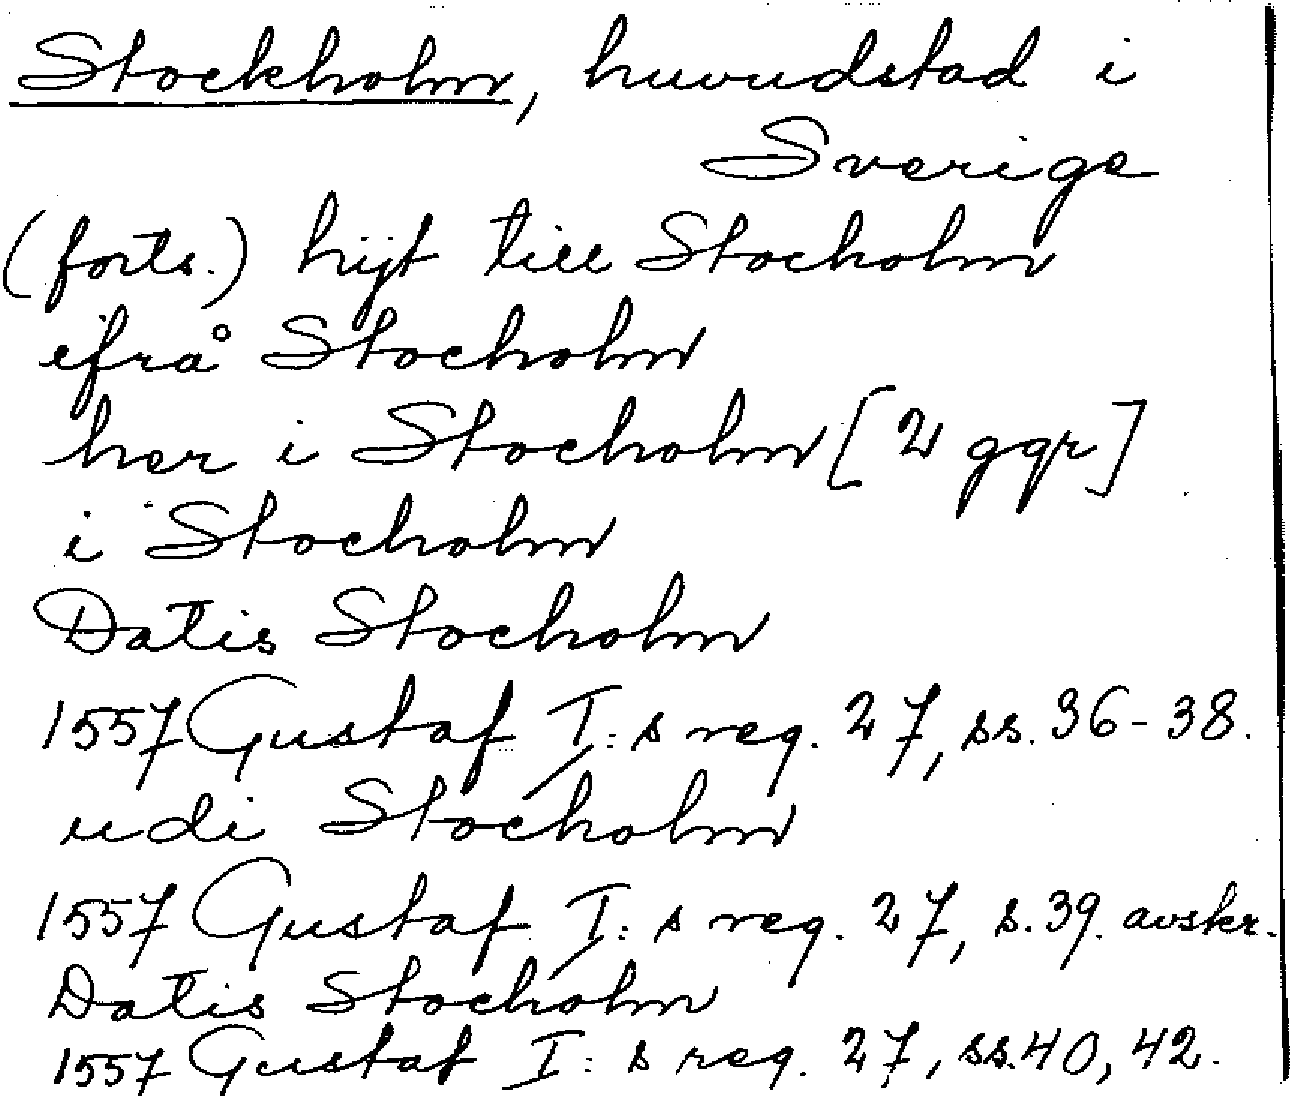 Stockholm, huvudstad i
Sverige
(forts.) hijt till Stocholm
ifrå Stocholm
her i Stocholm [2 ggr]
i Stocholm
Datis Stocholm
1557 Gustaf I:s reg. 27, ss. 36-38.
udi Stocholm
1557 Gustaf I:s reg. 27, s. 39. avskr.
Datis Stocholm
1557 Gustaf I:s reg. 27, ss. 40, 42.